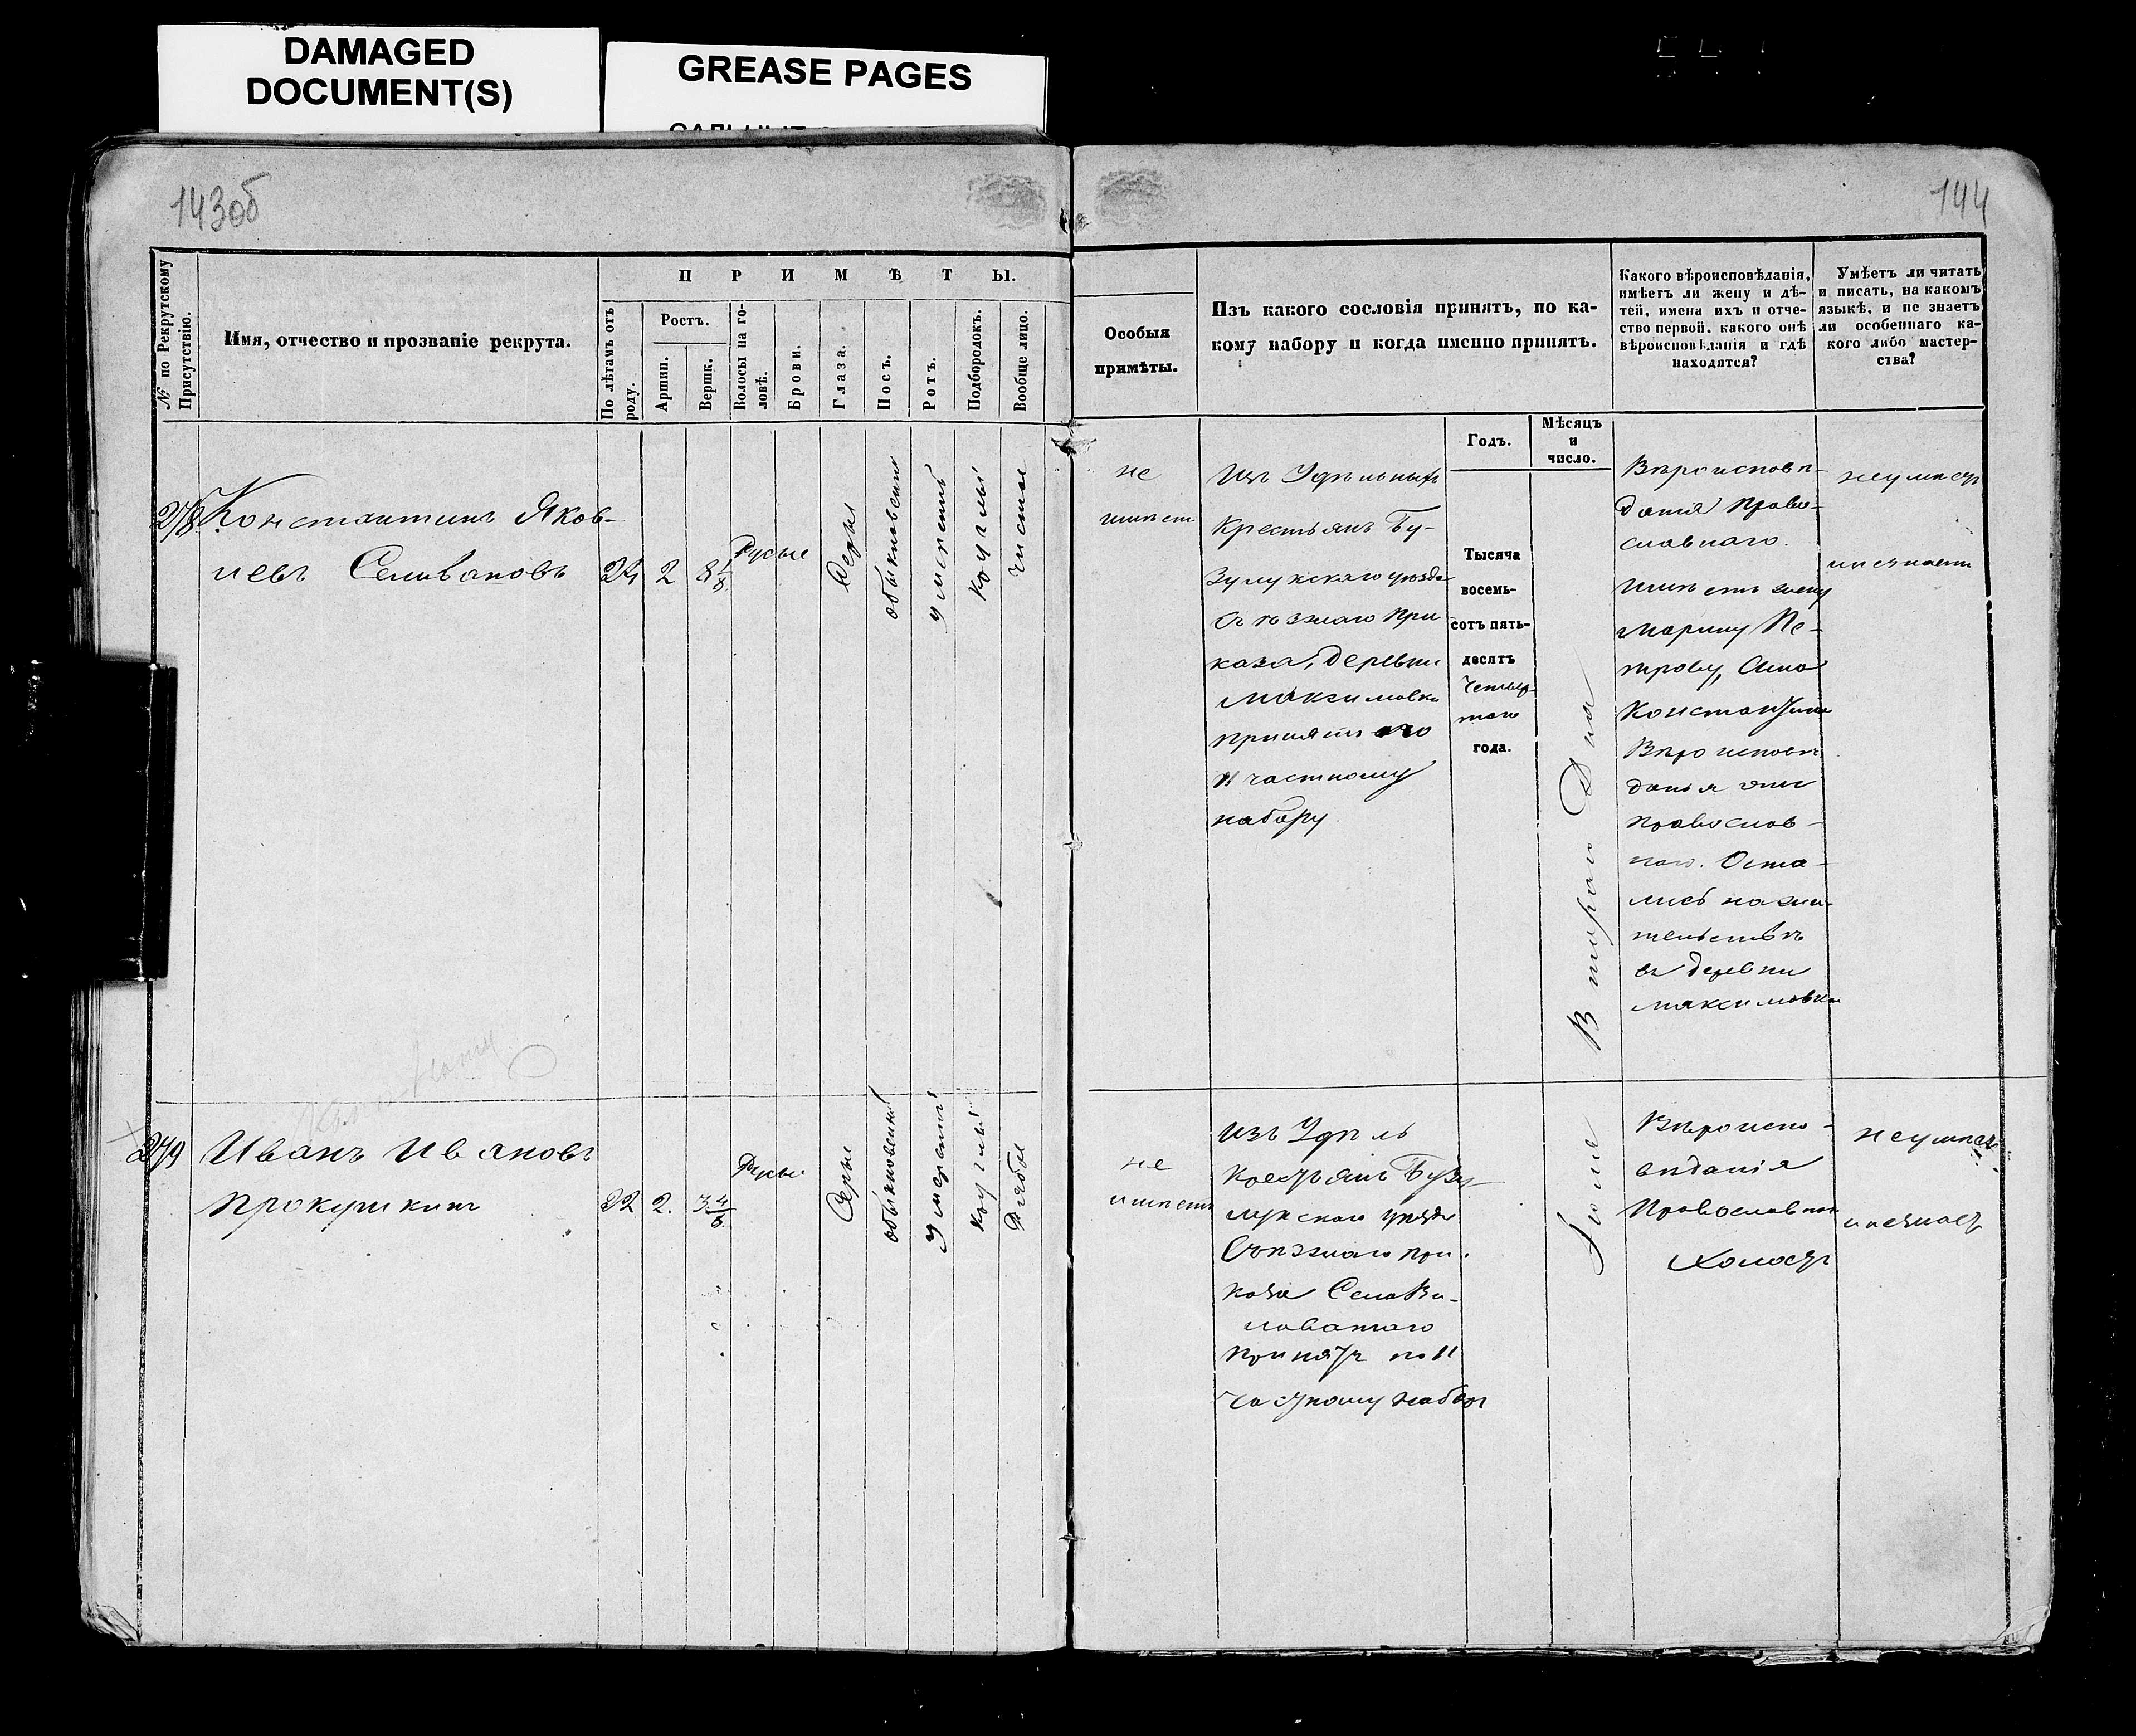 DAMAGED
DOCUMENT(S)
GREASE PAGES
143об
144
№ по Рекрутскому
Присутствію.
Имя, отчество и прозваніе рекрута.
П Р И М Ѣ Т Ы.
По лѣтамъ отъ
роду.
Ростъ.
Аршин.
Вершк.
Волосы на го-
ловѣ.
Брови.
Глаза.
Носъ.
Ротъ.
Подбородокъ.
Вообще лицо.
Особыя
примѣты.
Изъ какого сословія принятъ, по ка-
кому набору и когда именно принятъ.
Годъ.
Мѣсяцъ
и
число.
Какого вѣроисповѣданія,
имѣетъ ли жену и дѣ-
тей, имена ихъ и отче-
ство первой, какого онѣ
вѣроисповѣданія и гдѣ
находятся?
Умѣетъ ли читать
и писать, на какомъ
языкѣ, и не знаетъ
ли особеннаго ка-
кого либо мастер-
ства?
278
Константинъ Яков-
левъ Селивановъ
24
2
8 1/8
Русые
Серы
обыкновенны
умеренны
круглы
чистое
не
имѣет
Изъ Удѣльныхъ
Крестьянъ Бу-
зулукскаго уѣзда
Съѣзжаго При
каза, деревни
Максимовки
принятъ по
11 частному
набору
Тысяча
восемь-
сотъ пять-
десятъ
Четвер-
таго
года.
Втораго Дня
Июня
Вѣроисповѣ-
данія Право-
славнаго.
имѣетъ жену
Марину Пе-
трову, Сына
Константина
Вѣроисповѣ
данія они
православ-
наго. Оста-
лись на жи-
тельствѣ
въ деревни
Максимовки
неумѣетъ
инезнаетъ
279
Иванъ Ивановъ
Прокурикинъ
22
2.
3 4/8
Русы
Серы
обыкновенны
Умеренны
круглы
Рябое
не
имѣетъ
изъ Удѣль
Крестьянъ Бузу-
лукскаго уѣзда
Съѣзжаго при-
каза Села Ви-
ловатаго
принятъ по 11
частному набору
Вѣроиспо-
вѣданія
Православнаго
Холостъ
неумѣетъ
инезнаетъ